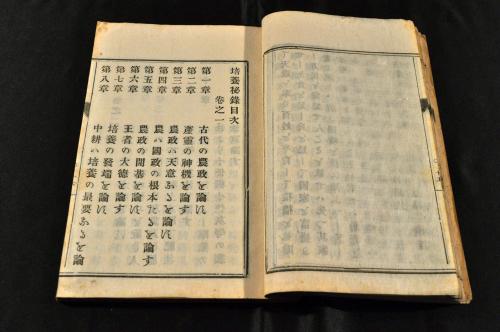 培養秘錄目次
卷之一
第一章　古代の農政を論ず
第二章　產靈の神機を論す
第三章　農政ハ天意なるを論ず
第四章　農ハ國政の根本たるを論す
第五章　農政の開基を論ず
第六章　王者の大德を論す
第七章　培養の發端を論ず
第八章　中耕ハ培養の最要なるを論